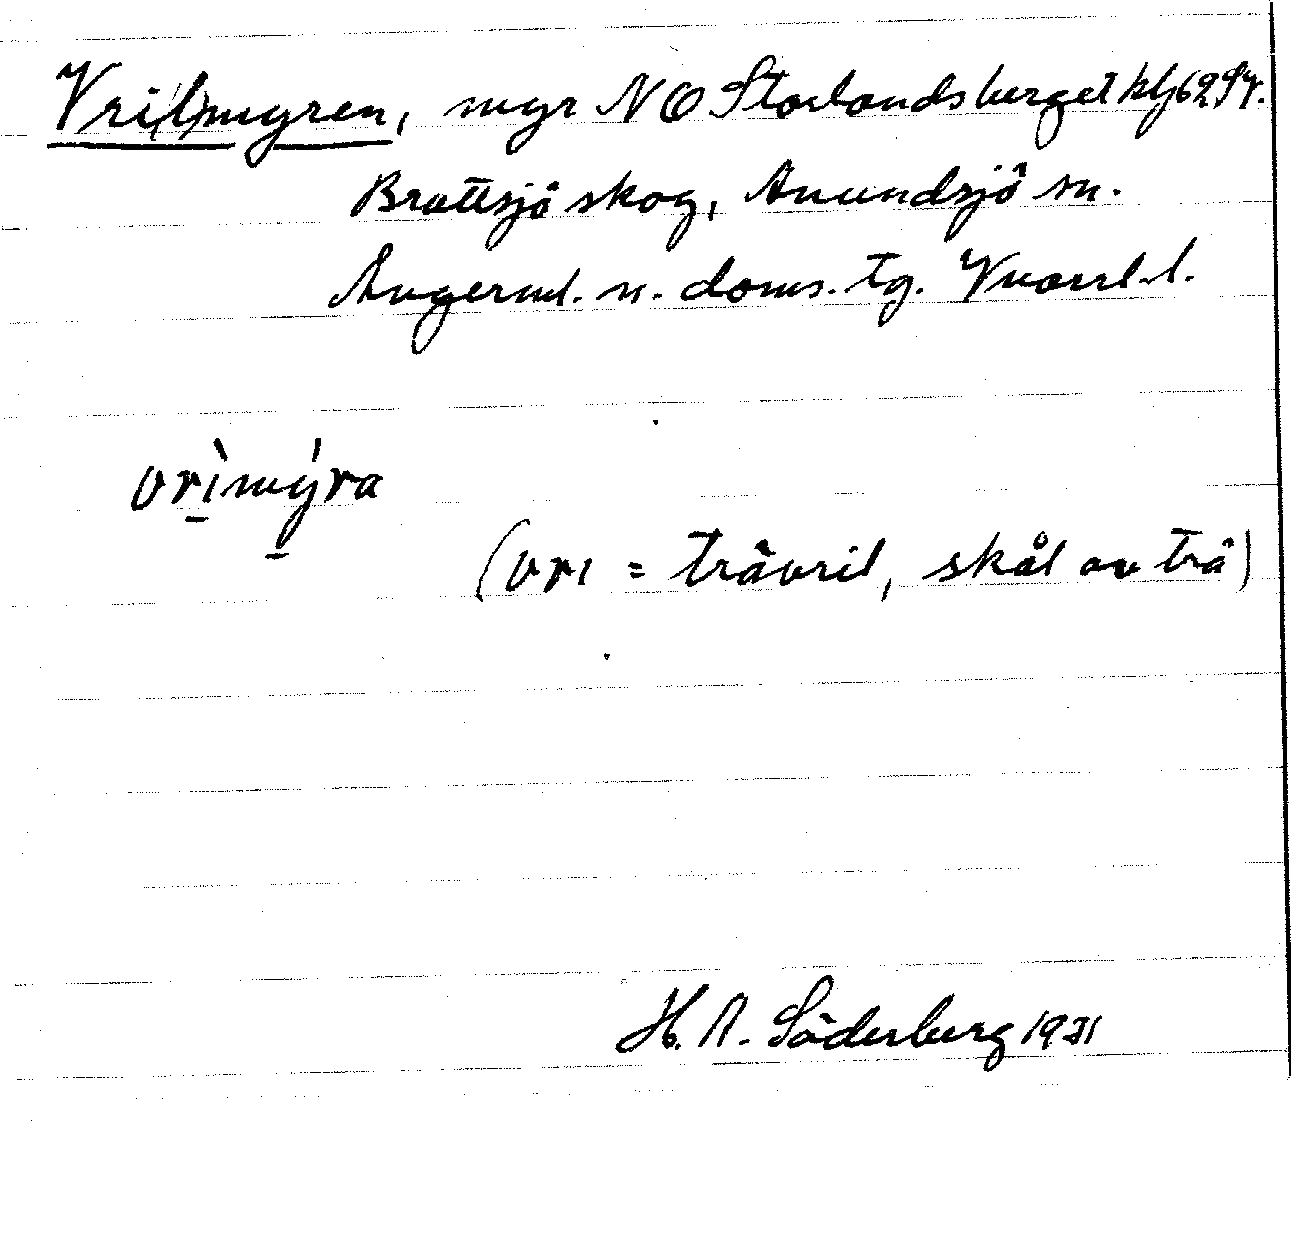 Vri(l)myren, myr NO Storlandsberget
Brattsjö skog, Anundsjö sn.
Ångerml. n. doms. tg. Vnorrl. l.
vrìmýra
(vri = trävril, skål av trä)
H. A. Söderberg 1931